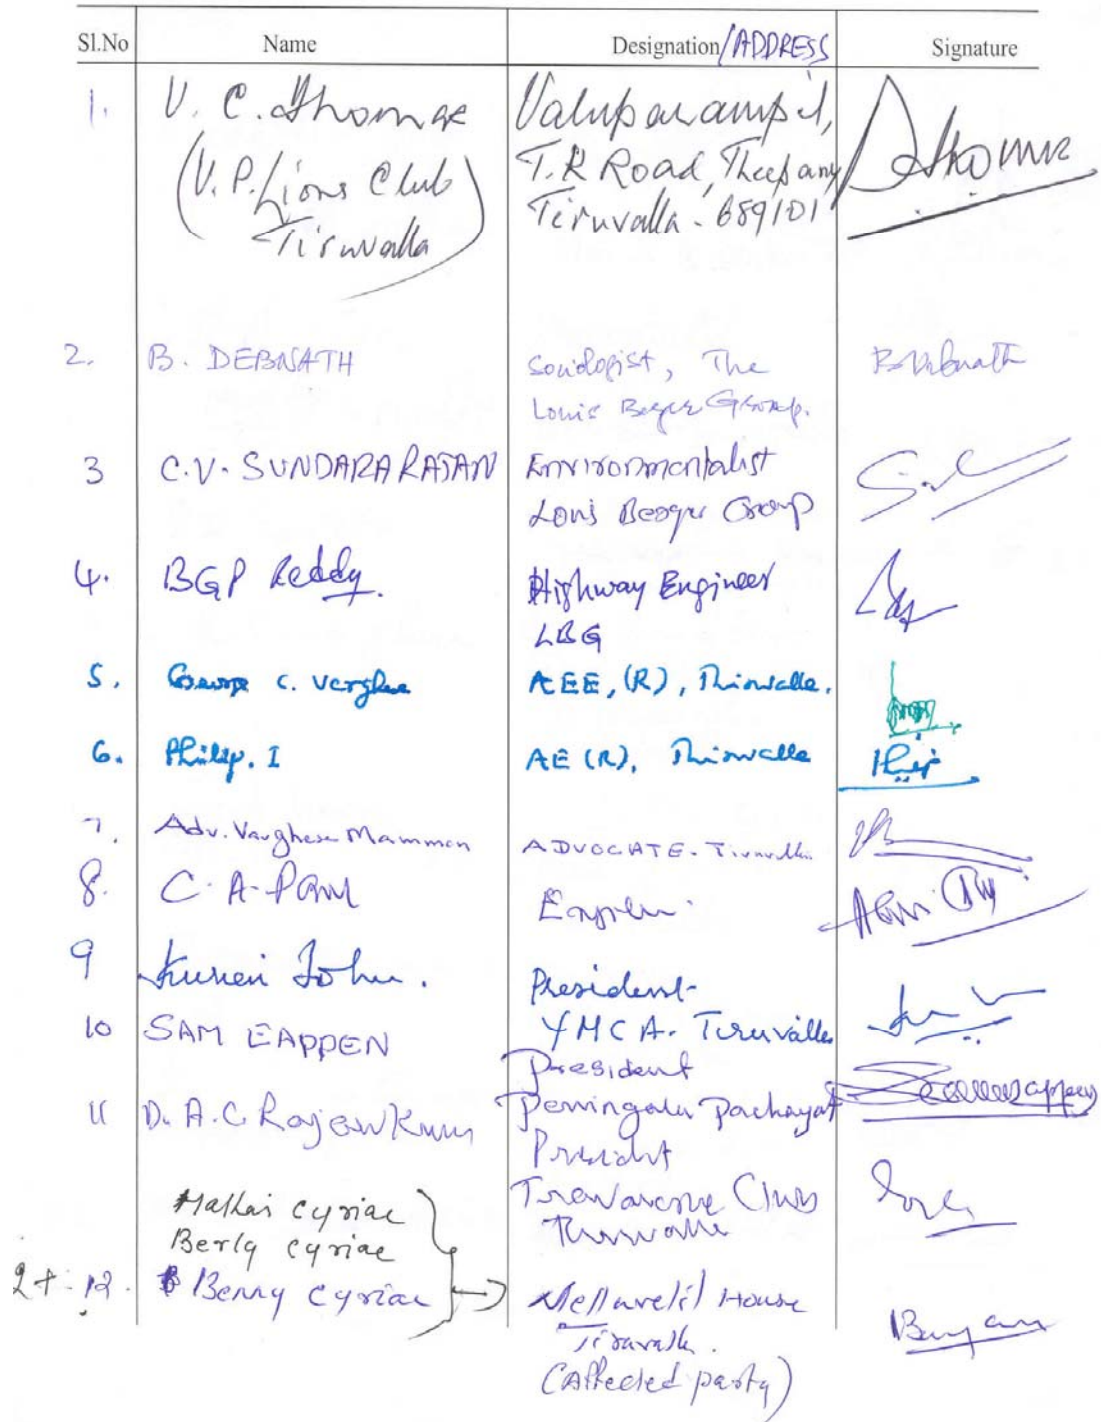 Sl.No Name Designation/ADDRESS Signature
1. V. C. Thomas Valuparampil,
(V.P. Lions Club T.K Road, Theepany
Tiruvalla) Tiruvalla - 689101
Thomas
2. B. DEBNATH Sociologist, The
Louis Berger Group.
B Debnath
3 C.V. SUNDARARAJAN Environmentalist
Louis Berger Group
4. BGP Reddy. Highway Engineer
LBG
5. George C. Verghese AEE, (R), Thiruvalla.
6. Philip. I AE (R), Thiruvalla
7. Adv. Varghese Mammen ADVOCATE - Tiruvalla
8. C. A. Paul
9 Kurien John. President
YMCA. Tiruvalla
10 SAM EAPPEN President
Peringala Pachayat
11 D. A. C President
Travancore Club
Thiruvalla
Mathai Cyriac
Berly Cyriac
2+ 12. Benny Cyriac House
Tiruvalla.
(Affected party)